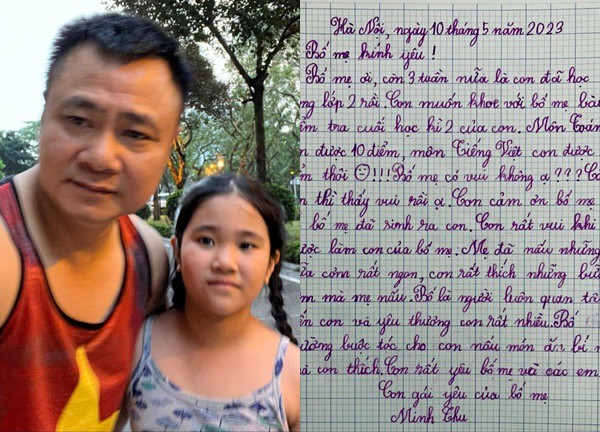 Hà Nội, ngày 10 tháng 5 năm 2023
Bố mẹ kính yêu !
Bố mẹ ơi, còn 3 tuần nữa là con đã học
ng lớp 2 rồi. Con muốn khoe với bố mẹ bài
ểm tra cuối học kì 2 của con. Môn Toán
n được 10 điểm, môn Tiếng Việt con được
m thôi !!! Bố mẹ có vui không ạ ??? Co
n thì thấy vui rồi ạ. Con cảm ơn bố mẹ
bố mẹ đã sinh ra con. Con rất vui khi
ược làm con của bố mẹ. Mẹ đã nấu những
ữa cơm rất ngon, con rất thích những bữ
m mà mẹ nấu. Bố là người luôn quan tâ
ến con và yêu thương con rất nhiều. Bố
ường buộc tóc cho con nấu món bí
con thích. Con rất yêu bố mẹ và các em
Con gái yêu của bố mẹ
Minh Thu